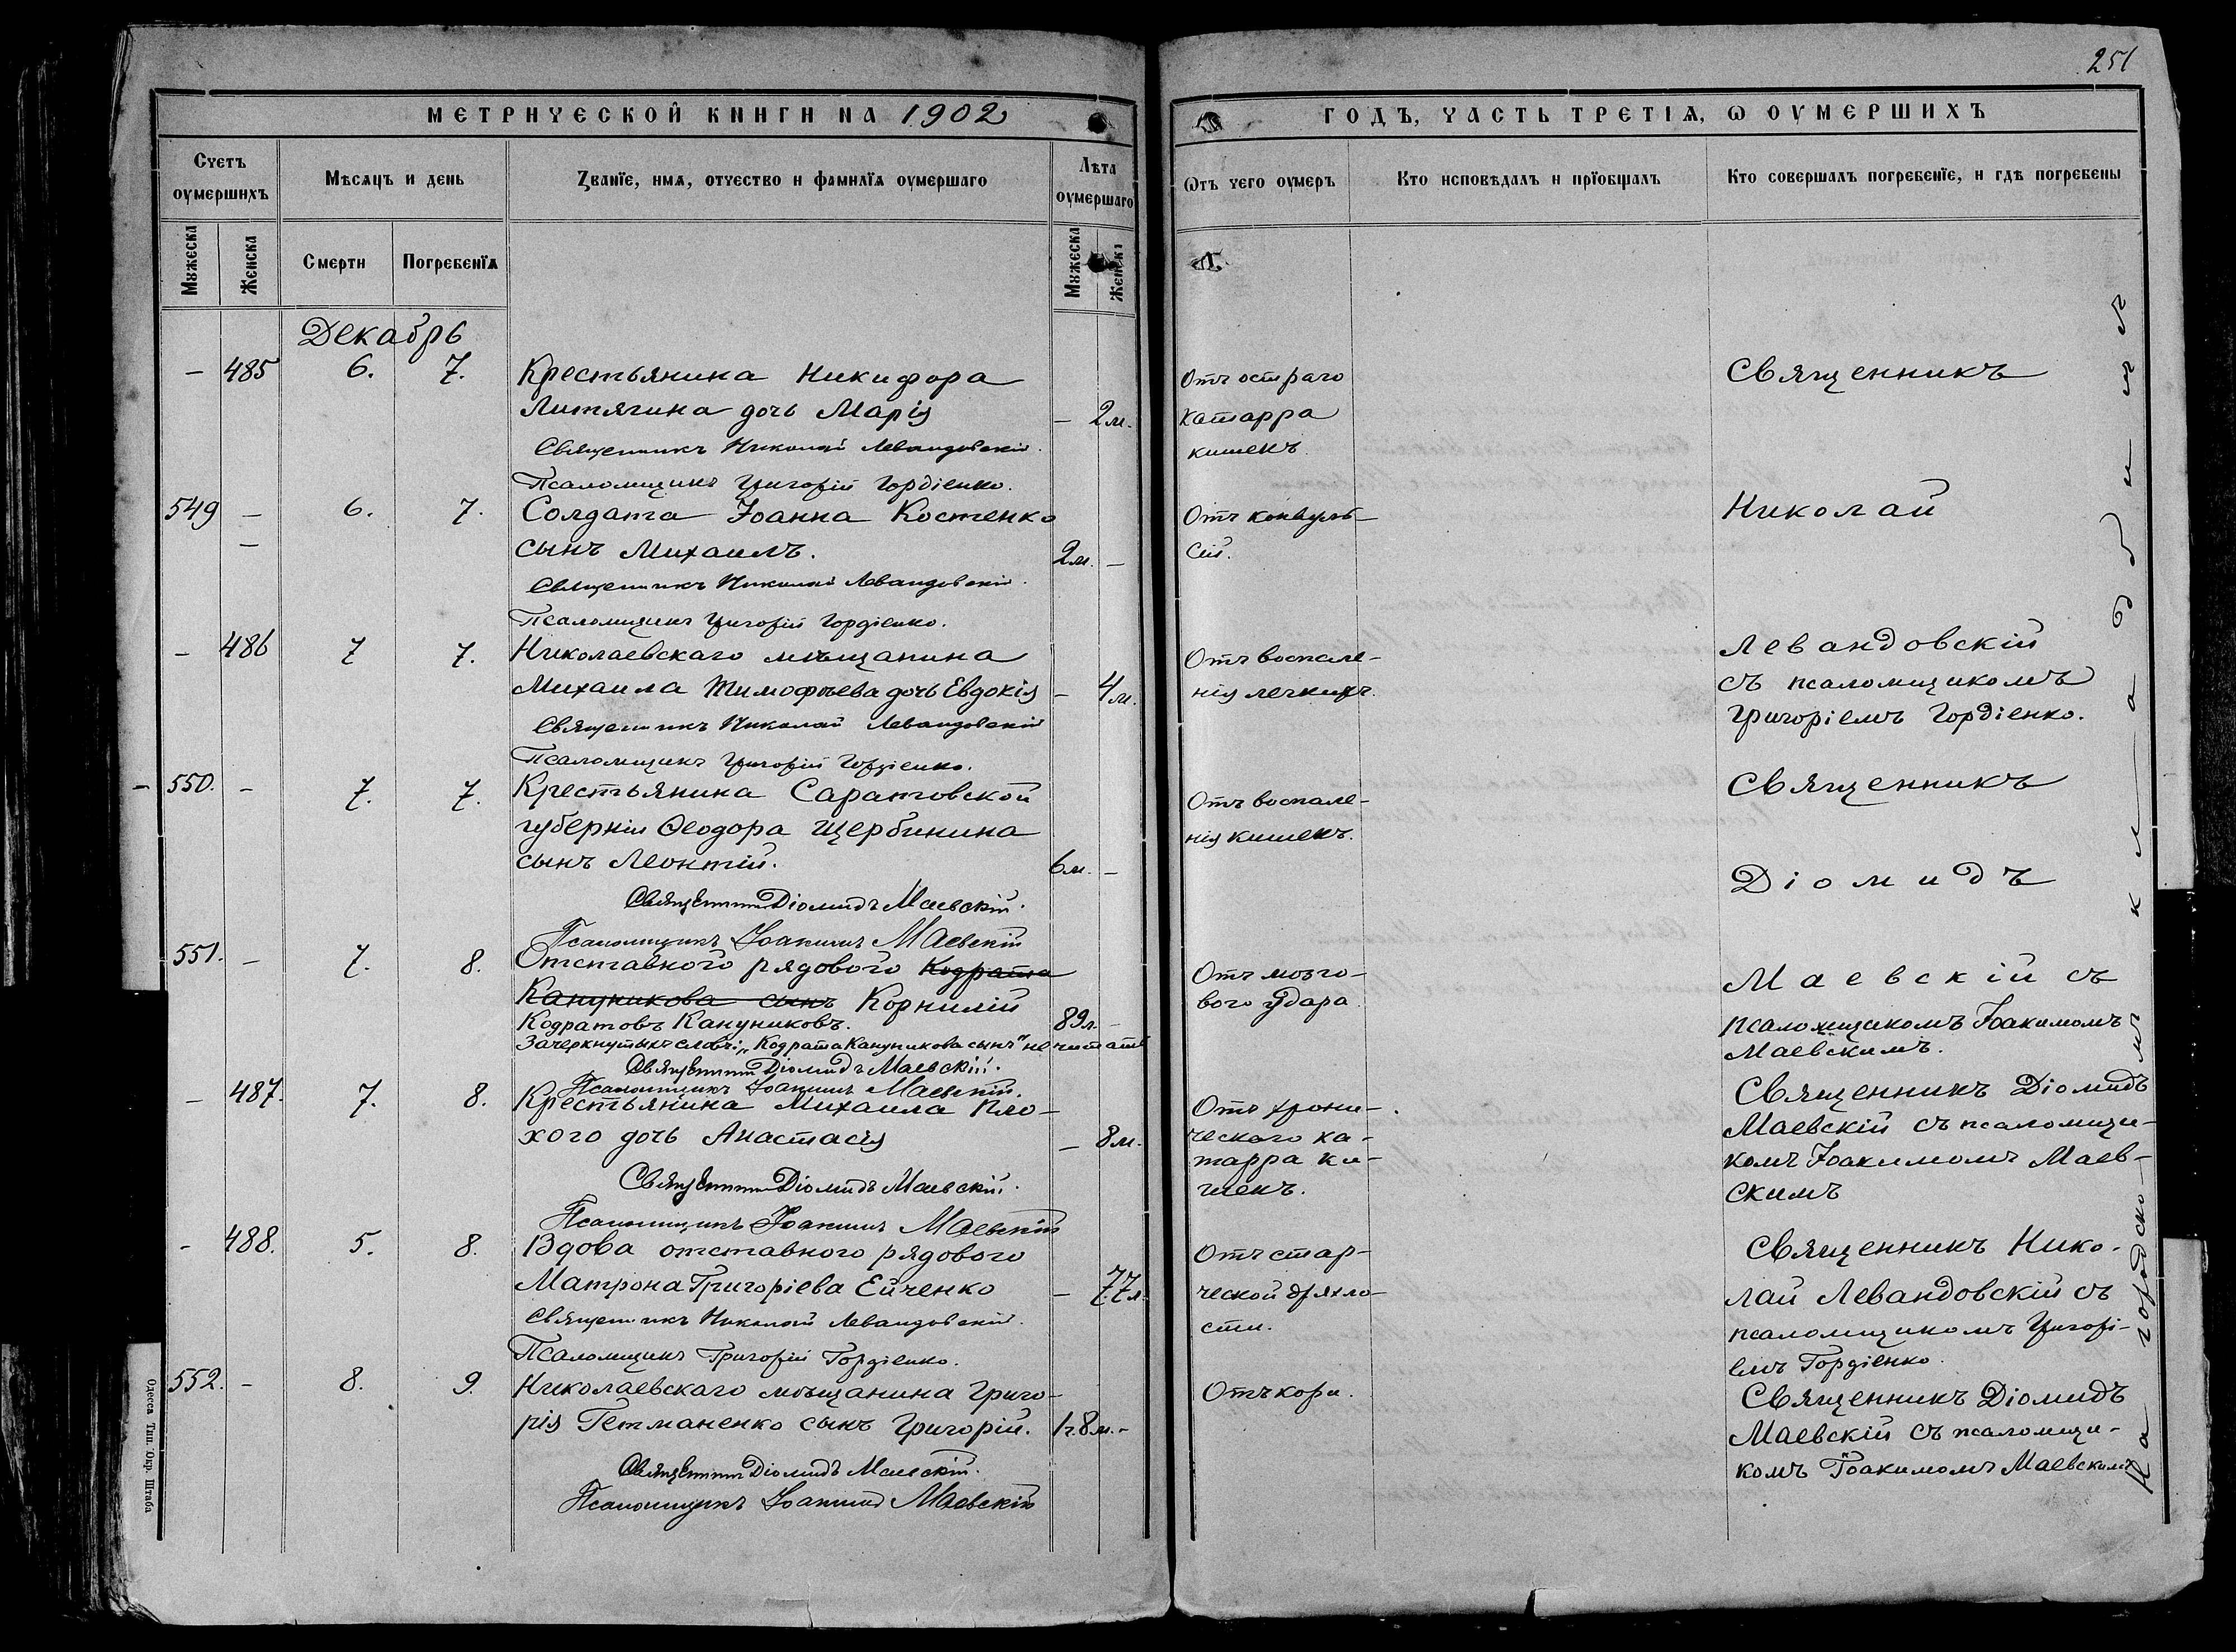 251
МЕТРИЧЕСКОЙ КНИГИ НА 1902
ГОДЪ, ЧАСТЬ ТРЕТІѦ, Ѡ ОУМЕРШИХЪ
Счетъ оумершихъ
Мѣсяцъ и день
Званїе, имѧ, отчество и фамилїѧ оумершаго
Лѣта оумершаго
Ѿтъ чего оумеръ
Кто исповѣдалъ и прїобщалъ
Кто совершалъ погребенїе, и гдѣ погребены
Мужеска
Женска
Смерти
Погребенїѧ
Мужеска
Женска
Декабрь
– 485 6. 7. Крестьянина Никифора
Литягина дочь Марія – 2 м.
Священникъ Николай Левандовскій.
Псаломщикъ Григорій Гордіенко.
Отъ остраго
катарра
кишекъ.
Священникъ
549 – 6. 7. Солдата Іоанна Костенко
сынъ Михаилъ. 2 м. –
Священникъ Николай Левандовскій.
Псаломщикъ Григорій Гордіенко.
Отъ конвуль-
сій.
Николай
– 486 7 7. Николаевскаго мѣщанина
Михаила Тимофѣева дочь Евдокія – 4 м.
Священникъ Николай Левандовскій
Псаломщикъ Григорій Гордіенко.
Отъ воспале-
нія легкихъ.
Левандовскій
съ псаломщикомъ
Григоріемъ Гордіенко.
550. – 7. 7. Крестьянина Саратовской
губерніи Ѳеодора Щербинина
сынъ Леонтій. 6 м. –
Священникъ Діомидъ Маевскій.
Псаломщикъ Іоакимъ Маевскій
Отъ воспале-
нія кишекъ.
Священникъ
Діомидъ
551. – 7. 8. Отставного рядового Кодрата
Кануникова сынъ Корнилій
Кодратовъ Кануниковъ. 89 л. –
Зачеркнутыхъ словъ: „Кодрата Кануникова сынъ" не читать
Священникъ Діомидъ Маевскій.
Псаломщикъ Іоакимъ Маевскій.
Отъ мозго-
вого удара
Маевскій съ
псаломщикомъ Іоакимомъ
Маевскимъ.
– 487. 7. 8. Крестьянина Михаила Пло-
хого дочь Анастасія – 8 м.
Священникъ Діомидъ Маевскій.
Псаломщикъ Іоакимъ Маевскій
Отъ хрони-
ческаго ка-
тарра ки-
шекъ.
Священникъ Діомидъ
Маевскій съ псаломщи-
комъ Іоакимомъ Маев-
скимъ
– 488. 5. 8. Вдова отставного рядового
Матрона Григоріева Ейченко – 77 л.
Священникъ Николай Левандовскій.
Псаломщикъ Григорій Гордіенко.
Отъ стар-
ческой дряхло-
сти.
Священникъ Нико-
лай Левандовскій съ
псаломщикомъ Григорі-
емъ Гордіенко.
552. – 8. 9. Николаевскаго мѣщанина Григо-
рія Гетманенко сынъ Григорій. 1 г. 8 м. –
Священникъ Діомидъ Маевскій.
Псаломщикъ Іоакимъ Маевскій
Отъ кори.
Священникъ Діомидъ
Маевскій съ псаломщи-
комъ Іоакимомъ Маевскимъ
На городскомъ кладбищѣ
Одесса Тип. Окр. Штаба